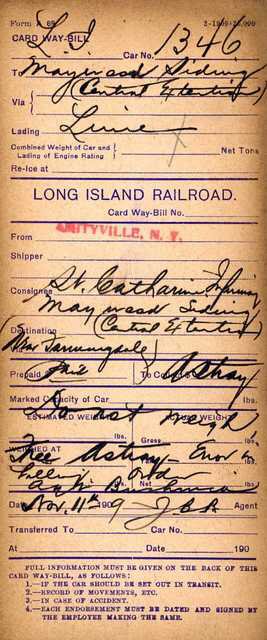 Form A 69 2-1909-25,000
CARD WAY-BILL.
L. I. Car No. 1346
To Maywood Siding
Via (Central Extention)
Lading Lime
Combined Weight of Car and
Lading of Engine Rating Net Tons
Re-Ice at
LONG ISLAND RAILROAD.
Card Way-Bill No.
From AMITYVILLE, N. Y.
Shipper
Consignee St. Catharine Infirmary
Maywood Siding
Destination (Central Extention)
(Near Farmingdale)
Prepaid To Collect Astray
Marked Capacity of Car lbs.
ESTIMATED WEIGHT WEIGHT
Do not weigh
lbs. Gross lbs.
WEIGHED AT
Free Astray - Error in
lbs.
Date Nov. 11th 190 9 Agent
Transferred To Car No.
At Date 190
FULL INFORMATION MUST BE GIVEN ON THE BACK OF THIS
CARD WAY-BILL, AS FOLLOWS:
1.—IF THE CAR SHOULD BE SET OUT IN TRANSIT.
2.—RECORD OF MOVEMENTS, ETC.
3.—IN CASE OF ACCIDENT.
4.—EACH ENDORSEMENT MUST BE DATED AND SIGNED BY
THE EMPLOYEE MAKING THE SAME.